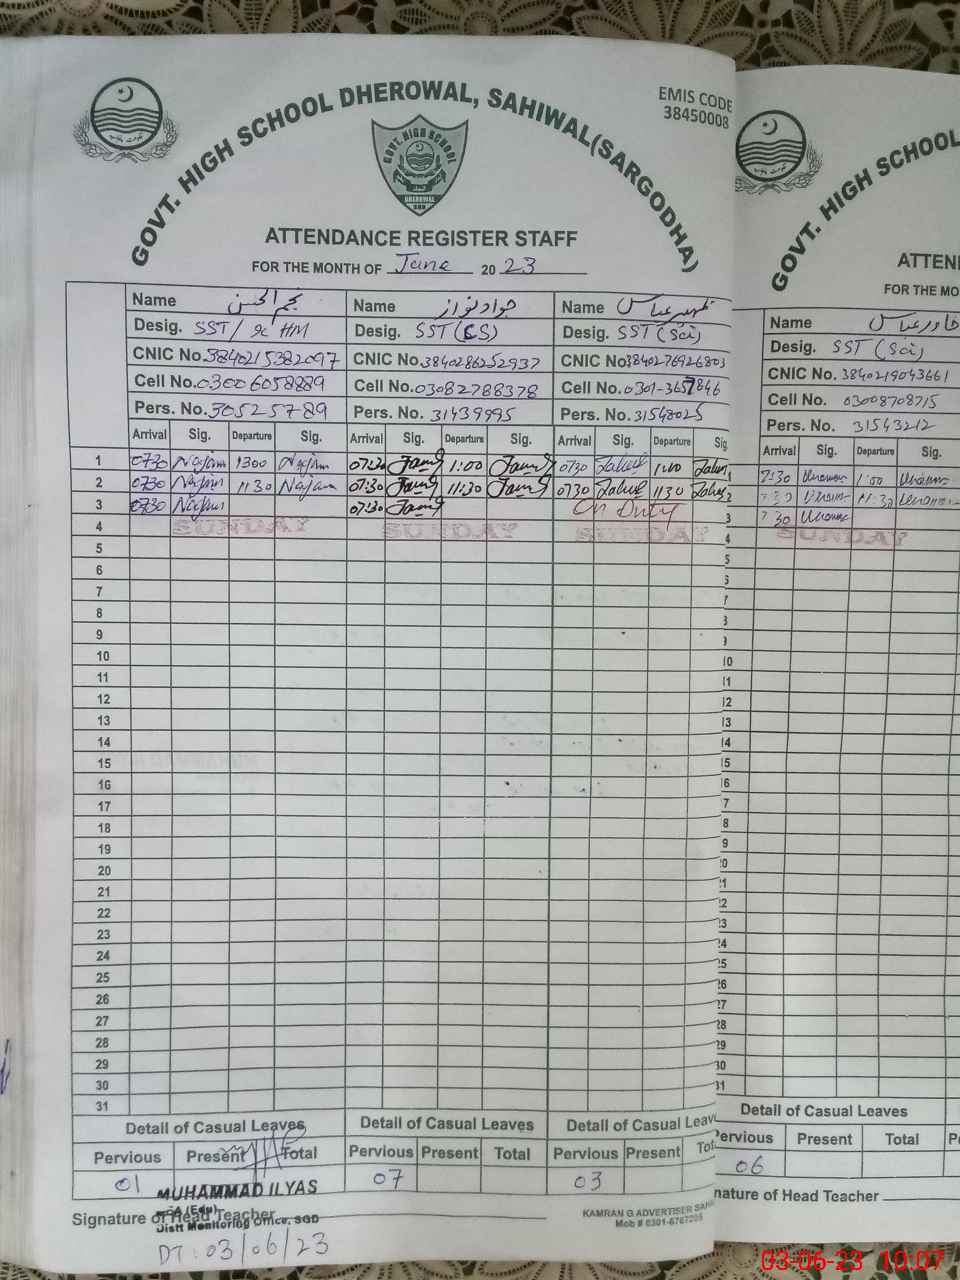 EMIS CODE
38450008
GOVT. HIGH SCHOOL DHEROWAL, SAHIWAL(SARGODHA)
GOVT. HIGH SCHOOL
DHEROWAL
SGD
ATTENDANCE REGISTER STAFF
FOR THE MONTH OF June 2023
Name نجم الحسن Name جواد نواز Name ظہیر عباس
Desig. SST / Desig. SST (CS) Desig. SST (Sci)
CNIC No. 3840215382097 CNIC No. 3840286252937 CNIC No. 3840276926803
Cell No. 03006058889 Cell No. 03082788378 Cell No. 0301-3657846
Pers. No. 30525789 Pers. No. 31439995 Pers. No. 31548025
Arrival Sig. Departure Sig. Arrival Sig. Departure Sig. Arrival Sig. Departure Sig
1 0730 Najam 1300 Najam 07:30 1:00 0730 1:00
2 0730 Najam 1130 Najam 07:30 11:30 0730 1130
3 0730 Najam 07:30 On Duty
4 SUNDAY SUNDAY SUNDAY
5
6
7
8
9
10
11
12
13
14
15
16
17
18
19
20
21
22
23
24
25
26
27
28
29
30
31
Detail of Casual Leaves Detail of Casual Leaves Detail of Casual Leav
Pervious Present Total Pervious Present Total Pervious Present Tot
01 07 03
MUHAMMAD ILYAS
(Edu)
Distt Monitoring Office, SGD
Signature of Head Teacher
DT: 03/06/23
KAMRAN G ADVERTISER
Mob # 0301-6767205
GOVT. HIGH SCHOOL
ATTEN
FOR THE MO
Name خاور عباس
Desig. SST (Sci)
CNIC No. 3840219043661
Cell No. 03008708715
Pers. No. 31543212
Arrival Sig. Departure Sig.
7:30 1:00
11:30
7:30
SUNDAY
Detail of Casual Leaves
Pervious Present Total
06
nature of Head Teacher
03-06-23 10:07